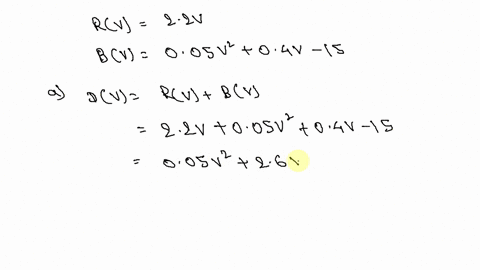 R(V) = 2.2V
B(V) = 0.05V² + 0.4V - 15
a) D(V) = R(V) + B(V)
= 2.2V + 0.05V² + 0.4V - 15
= 0.05V² + 2.6V